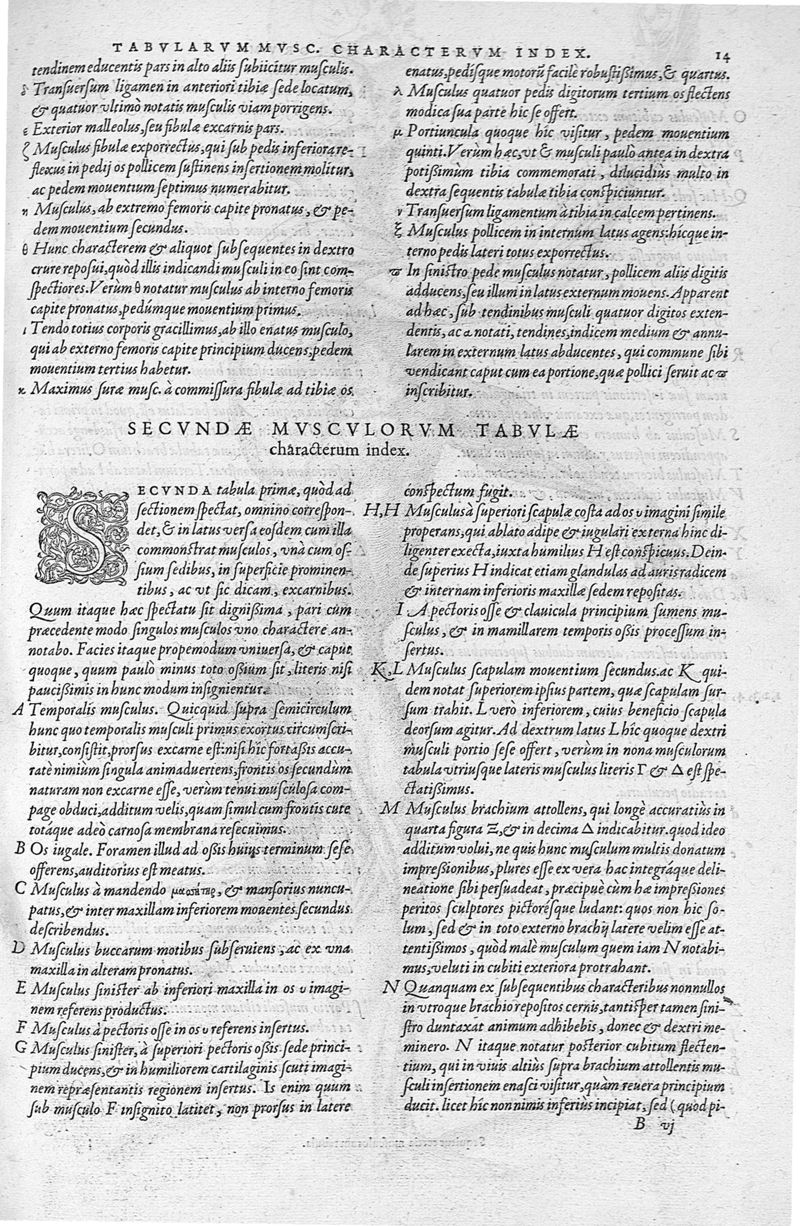 TABVLARVM MVSC. CHARACTERVM INDEX. 14
tendinem educentis pars in alto aliis subiicitur musculis.
δ Transuersum ligamen in anteriori tibiæ sede locatum,
& quatuor vltimò notatis musculis viam porrigens.
ε Exterior malleolus, seu fibulæ excarnis pars.
ζ Musculus fibulæ exporrectus, qui sub pedis inferiora re-
flexus in pedij os pollicem sustinens insertionem molitur,
ac pedem mouentium septimus numerabitur.
η Musculus, ab extremo femoris capite pronatus, & pe-
dem mouentium secundus.
θ Hunc characterem & aliquot subsequentes in dextro
crure reposui, quòd illis indicandi musculi in eo sint con-
spectiores. Verùm θ notatur musculus ab interno femoris
capite pronatus, pedúmque mouentium primus.
ι Tendo totius corporis gracillimus, ab illo enatus musculo,
qui ab externo femoris capite principium ducens, pedem
mouentium tertius habetur.
κ Maximus suræ musc. à commissura fibulæ ad tibiæ os
enatus, pedisque motorũ facilè robustißimus, & quartus.
λ Musculus quatuor pedis digitorum tertium os flectens
modica sua parte hîc se offert.
μ Portiuncula quoque hîc visitur, pedem mouentium
quinti. Verùm hæc, vt & musculi paulò antea in dextra
potißimùm tibia commemorati, dilucidiùs multo in
dextra sequentis tabulæ tibia conspiciuntur.
ν Transuersum ligamentum à tibia in calcem pertinens.
ξ Musculus pollicem in internum latus agens: hîcque in-
terno pedis lateri totus exporrectus.
ϖ In sinistro pede musculus notatur, pollicem aliis digitis
adducens, seu illum in latus externum mouens. Apparent
ad hæc, sub tendinibus musculi quatuor digitos exten-
dentis, ac α notati, tendines, indicem medium & annu-
larem in externum latus abducentes, qui commune sibi
vendicant caput cum ea portione, quæ pollici seruit ac ϖ
inscribitur.
SECVNDÆ MVSCVLORVM TABVLÆ
characterum index.
SECVNDA tabula primæ, quòd ad
sectionem spectat, omnino correspon-
det, & in latus versa eosdem cum illa
commonstrat musculos, vnà cum os-
sium sedibus, in superficie prominen-
tibus, ac vt sic dicam, excarnibus.
Quum itaque hæc spectatu sit dignißima, pari cùm
præcedente modo singulos musculos vno charactere an-
notabo. Facies itaque propemodum vniuersa, & caput
quoque, quum paulo minus toto ossium sit, literis nisi
paucißimis in hunc modum insignientur.
A Temporalis musculus. Quicquid supra semicirculum
hunc quo temporalis musculi primus exortus circumscri-
bitur, consistit, prorsus excarne est: nisi hîc fortaßis accu-
ratè nimium singula animaduertens, frontis os secundùm
naturam non excarne esse, verùm tenui musculosa com-
page obduci, additum velis, quam simul cum frontis cute
totáque adeò carnosa membrana resecuimus.
B Os iugale. Foramen illud ad oßis huius terminum sese
offerens, auditorius est meatus.
C Musculus à mandendo μασητὴρ, & mansorius nuncu-
patus, & inter maxillam inferiorem mouentes secundus
describendus.
D Musculus buccarum motibus subseruiens, ac ex vna
maxilla in alteram pronatus.
E Musculus sinister ab inferiori maxilla in os υ imagi-
nem referens productus.
F Musculus à pectoris osse in os υ referens insertus.
G Musculus sinister, à superiori pectoris oßis sede princi-
pium ducens, & in humiliorem cartilaginis scuti imagi-
nem repræsentantis regionem insertus. Is enim quum
sub musculo F insignito latitet, non prorsus in latere
conspectum fugit.
H,H Musculus à superiori scapulæ costa ad os υ imagini simile
properans, qui ablato adipe & iugulari externa hinc di-
ligenter exectâ, iuxta humilius H est conspicuus. Dein-
de superius H indicat etiam glandulas ad auris radicem
& internam inferioris maxillæ sedem repositas.
I A pectoris osse & clauicula principium sumens mu-
sculus, & in mamillarem temporis oßis processum in-
sertus.
K,L Musculus scapulam mouentium secundus. ac K qui-
dem notat superiorem ipsius partem, quæ scapulam sur-
sum trahit. L verò inferiorem, cuius beneficio scapula
deorsum agitur. Ad dextrum latus L hîc quoque dextri
musculi portio sese offert, verùm in nona musculorum
tabula vtriusque lateris musculus literis Γ & Δ est spe-
ctatißimus.
M Musculus brachium attollens, qui longè accuratiùs in
quarta figura Ξ, & in decima Δ indicabitur. quod ideo
additum volui, ne quis hunc musculum multis donatum
impreßionibus, plures esse ex vera hac integráque deli-
neatione sibi persuadeat, præcipuè cùm hæ impreßiones
peritos sculptores pictorésque ludant: quos non hîc so-
lum, sed & in toto externo brachij latere velim esse at-
tentißimos, quòd malè musculum quem iam N notabi-
mus, veluti in cubiti exteriora protrahant.
N Quanquam ex subsequentibus characteribus nonnullos
in vtroque brachio repositos cernis, tantisper tamen sini-
stro duntaxat animum adhibebis, donec & dextri me-
minero. N itaque notatur posterior cubitum flecten-
tium, qui in viuis altiùs supra brachium attollentis mu-
sculi insertionem enasci visitur, quàm reuera principium
ducit. licet hîc non nimis inferiùs incipiat, sed (quod pi-
B vj